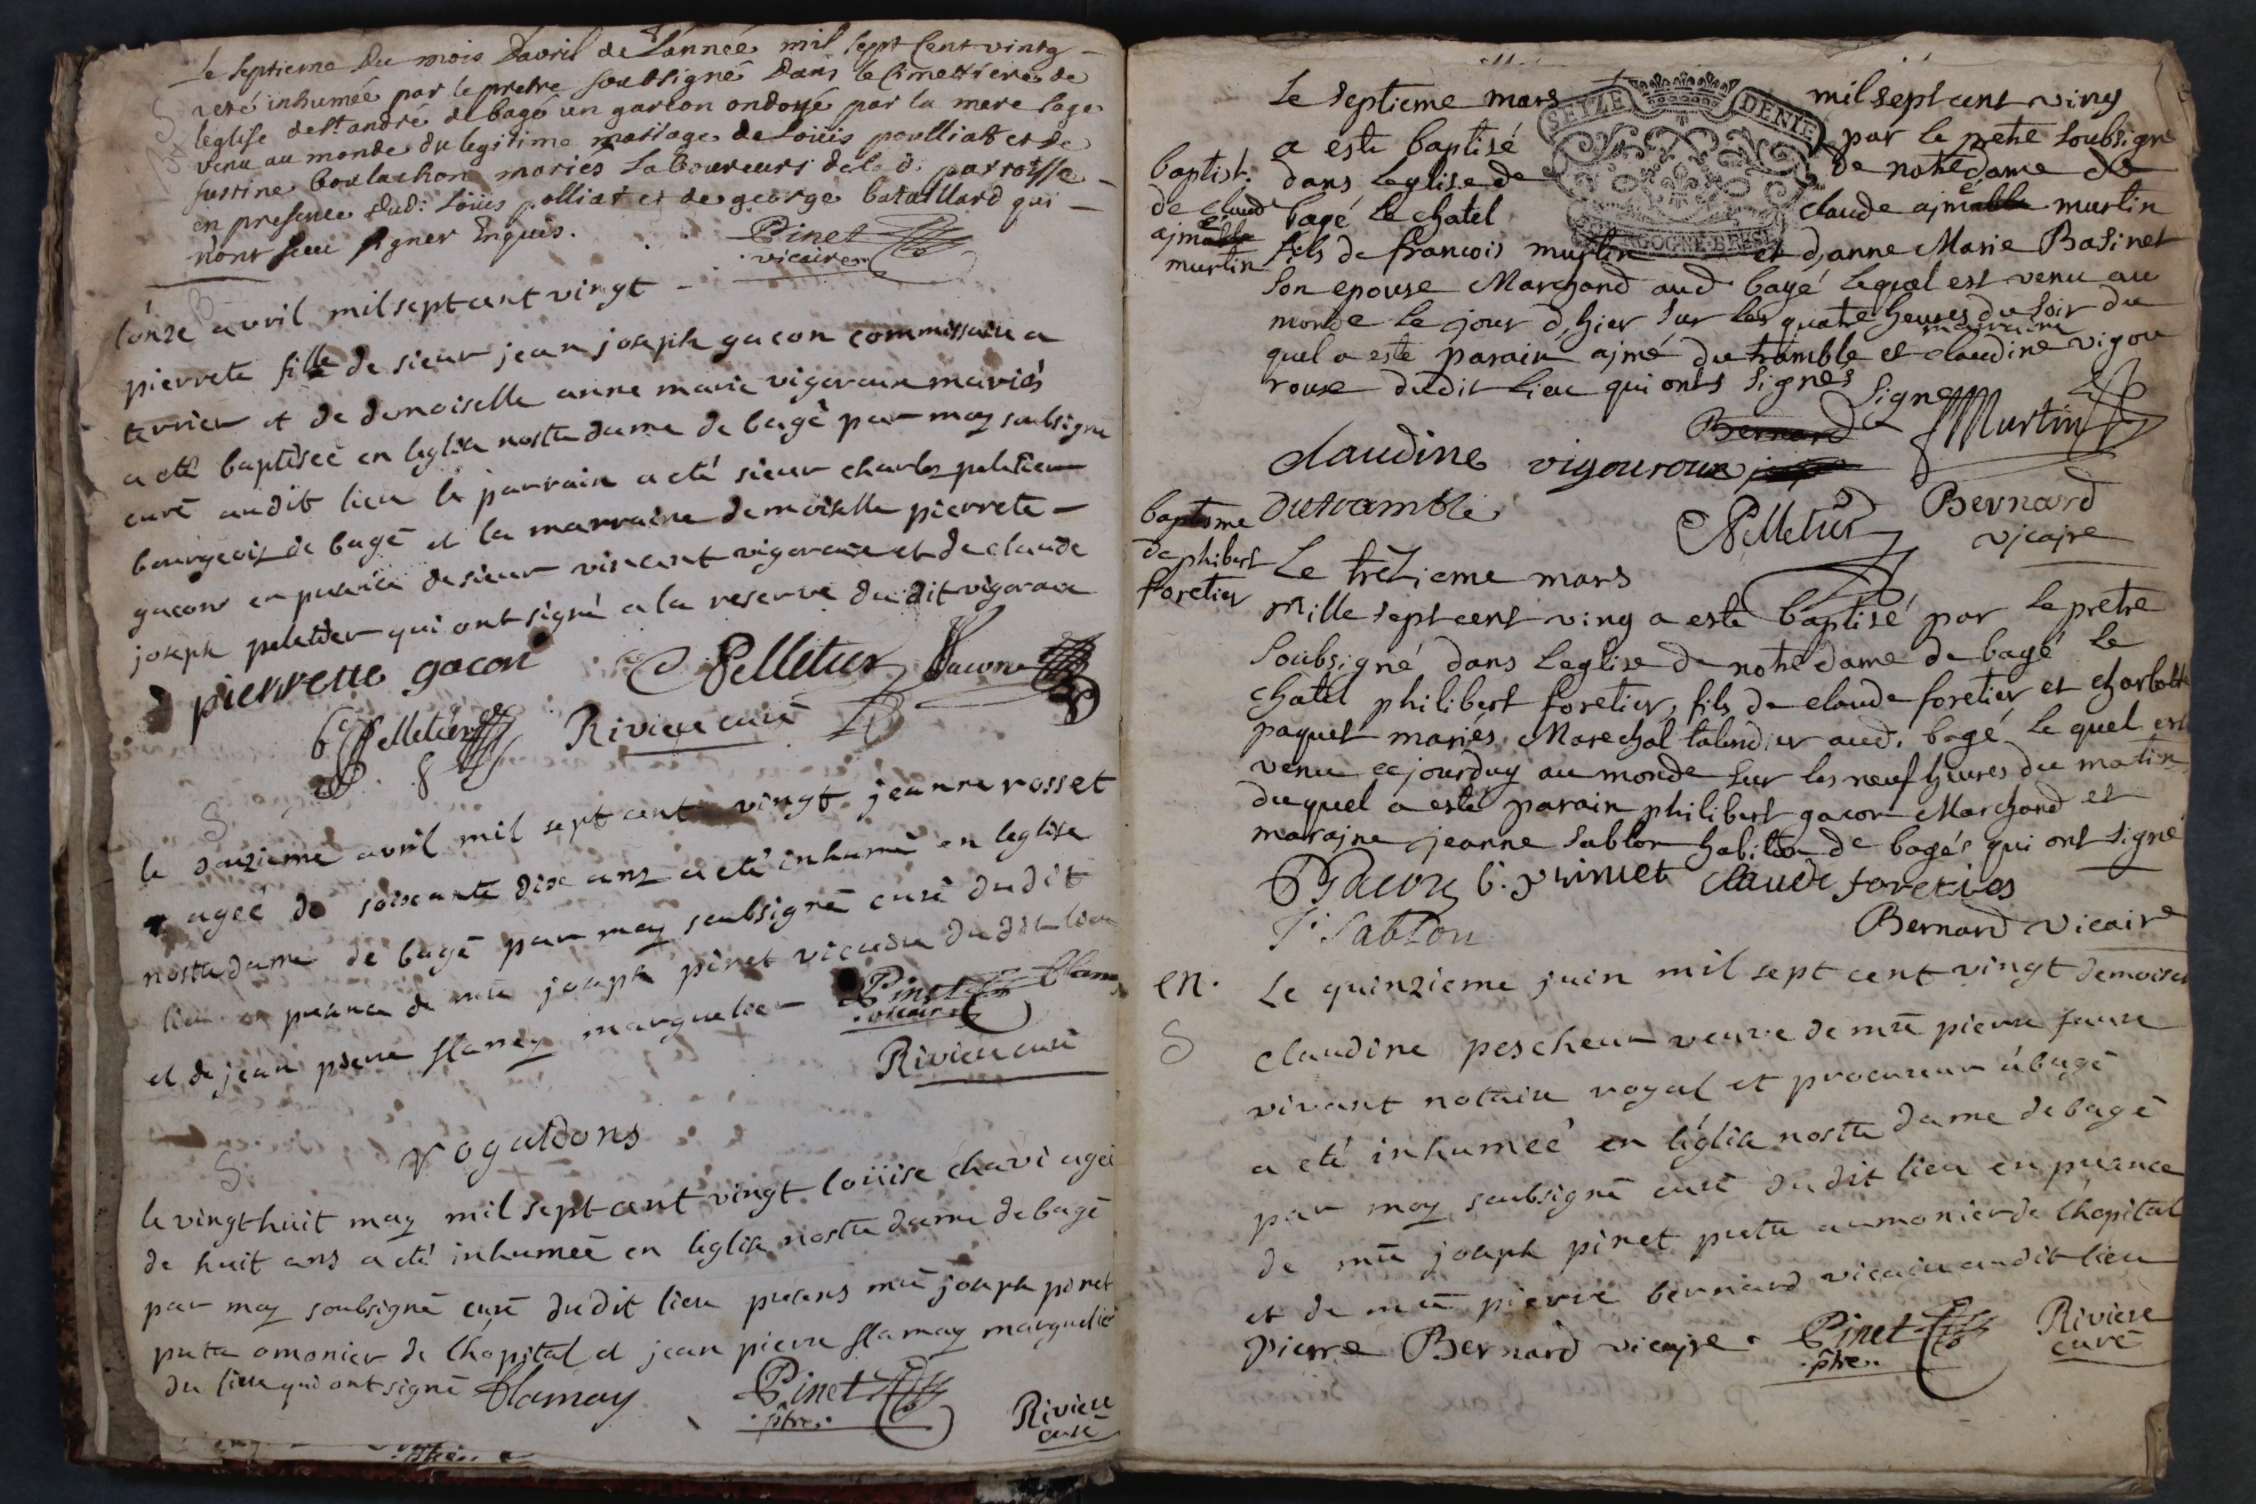 Le septieme Du mois Davril de L'année mil sept Cent vintg
 inhumée par le pretre soubsigné Dans le Cimettiere de
leglise de st andré de bagé un garcon ondoyé par la mere sage
venu au monde du legitime mariage de Loüis poulliat et de
 mariés Laboureurs de la d. parroisse
en presence dud: Loüis polliat et de george bataillard qui
n'ont sceu signer Enquis.
Pinet
vicaire
l'onze avril mil sept cent vingt
pierrete fille de sieur jean joseph gacon commissaire a
terrier et de demoiselle anne marie vigoraux mariés
a eté baptiseé en leglise nostre dame de bagé par moy soubsigne
curé audit lieu le parrain a eté sieur charles peletier
bourgeois de bagé et la marraine demoiselle pierrete
gacon en presence de sieur vincent vigoraux et de claude
joseph peletier qui ont signé a la reserve du dit vigoraux
pierrette gacon
C Pelletier
Gacon
Pelletier
Riviere curé
S
le douzieme avril mil sept cent vingt jeanne rosset
ageé de soixante dix ans a eté inhumé en leglise
nostre dame de bagé par moy soubsigné curé dudit
lieu en presence de mre joseph pinet vicaire dudit lieu
et de jean pierre flamey marguelier
Pinet
vicaire
Riviere curé
rogations
S
le vingt huit may mil sept cent vingt loüise chavi ageé
de huit ans a eté inhumeé en leglise nostre dame de bagé
par moy soubsigné curé dudit lieu presens mre joseph pinet
pretre omonier de lhopital et jean pierre flamay marguelier
du lieu qui ont signé
flamay
Pinet
ptre.
Riviere
curé
Le septieme mars mil sept cent ving
SEIZE DENIE
a este baptisé par le pretre soubsigné
baptist.
de claud
ajmé
murtin
dans Leglise de de notre dame de
bagé Le chatel claude ajmé murtin
BOURGOGNE.BRESSE
fils de francois murtin et d'anne Marie Basinet
son epouse Marchand aud. bagé Lequel est venu au
monde Le jour d'hier sur les quatre heures du soir du
marraine
quel a este parain ajmé du tramble et claudine vigou
rouse dudit Lieu qui onts signés
Signe
Bernard
Murtin
claudine vigouroux
Dutramble
Pelletier
Bernard
vicajre
baptisme
de phibert
foretier
Le treizieme mars
mille sept cent ving a este baptisé par le pretre
soubsigné dans Leglise de notre dame de bagé Le
chatel philibert foretier, fils de claude foretier et charlotte
paquet mariés Marechal talendier aud. bagé Le quel est
venu cejourduy au monde sur les neuf heures du matin
duquel a este parain philibert gacon Marchand et
marajne jeanne sablon habitan de bagé qui ont signé
P gacon
claude foretier
J. sablon
Bernard vicaire
en.
S
Le quinzieme juin mil sept cent vingt demoiselle
claudine pescheur veuve de mre pierre faure
vivant notaire royal et procureur a bagé
a eté inhumeé en léglise nostre dame de bagé
par moy soubsigné curé dudit lieu en presence
de mre joseph pinet pretre aumonier de lhopital
et de mre pierre bernard vicaire audit lieu
Pierre Bernard vicajre
Pinet
ptre.
Riviere
curé